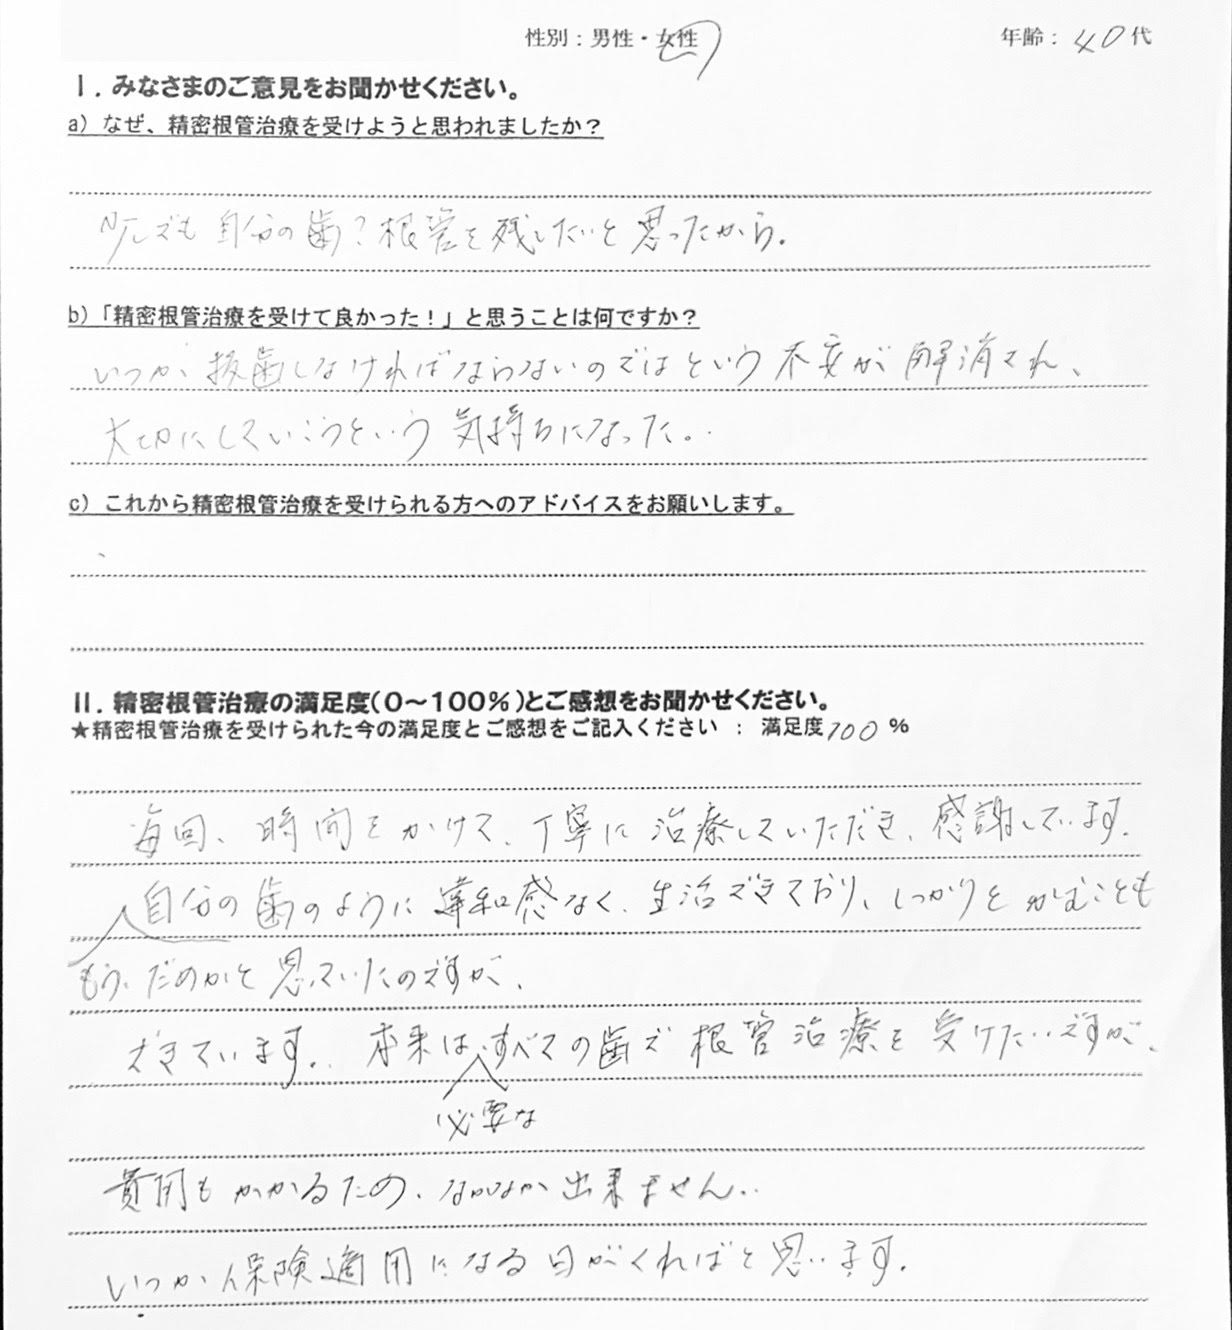 性別：男性・女性
年齢：40代
Ⅰ．みなさまのご意見をお聞かせください。
a）なぜ、精密根管治療を受けようと思われましたか？
少しでも自分の歯？根管を残したいと思ったから。
b）「精密根管治療を受けて良かった！」と思うことは何ですか？
いつか、抜歯しなければならないのではという不安が解消され、
大切にしていこうという気持ちになった。
c）これから精密根管治療を受けられる方へのアドバイスをお願いします。
Ⅱ．精密根管治療の満足度（0〜100％）とご感想をお聞かせください。
★精密根管治療を受けられた今の満足度とご感想をご記入ください ： 満足度100％
毎回、時間をかけて、丁寧に治療していただき、感謝しています。
自分の歯のように違和感なく、生活できており、しっかりとかむことも
もう、だめかと思っていたのですが、
できています。本来は、すべての歯で根管治療を受けたいですが、
必要な
費用もかかるため、なかなか出来ません..
いつか保険適用になる日がくればと思います。